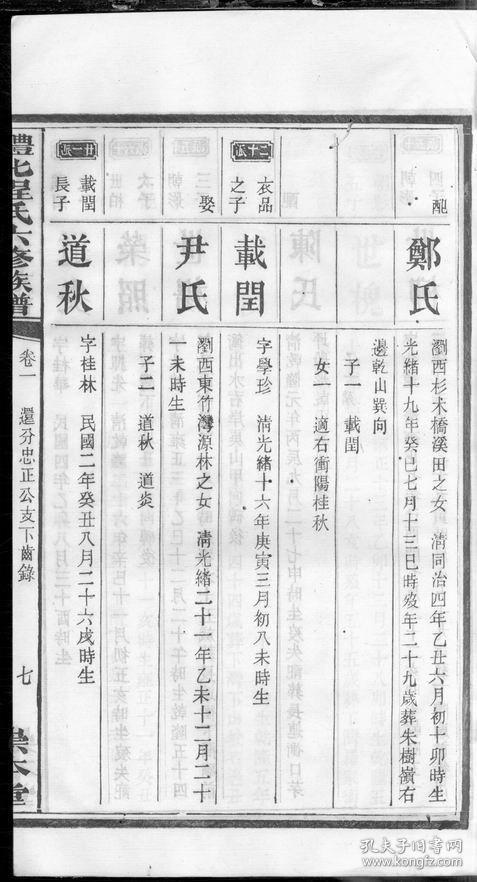 配
鄭氏
瀏西杉木橋溪田之女　清同治四年乙丑六月初十卯時生
光緒十九年癸巳七月十三巳時歿年二十九歲葬朱樹嶺右
邊乾山巽向
子一　載閏
女一　適右衝陽桂秋
二十派
衣品
之子
載閏
字學珍　清光緒十六年庚寅三月初八未時生
娶
尹氏
瀏西東竹灣源林之女　清光緒二十一年乙未十二月二十
一未時生
子二　道秋　道炎
廿一派
載閏
長子
道秋
字桂林　民國二年癸丑八月二十六戌時生
澧北程氏六修族譜
卷一　還分忠正公支下齒錄
七
崇本堂
孔夫子旧书网
www.kongfz.com